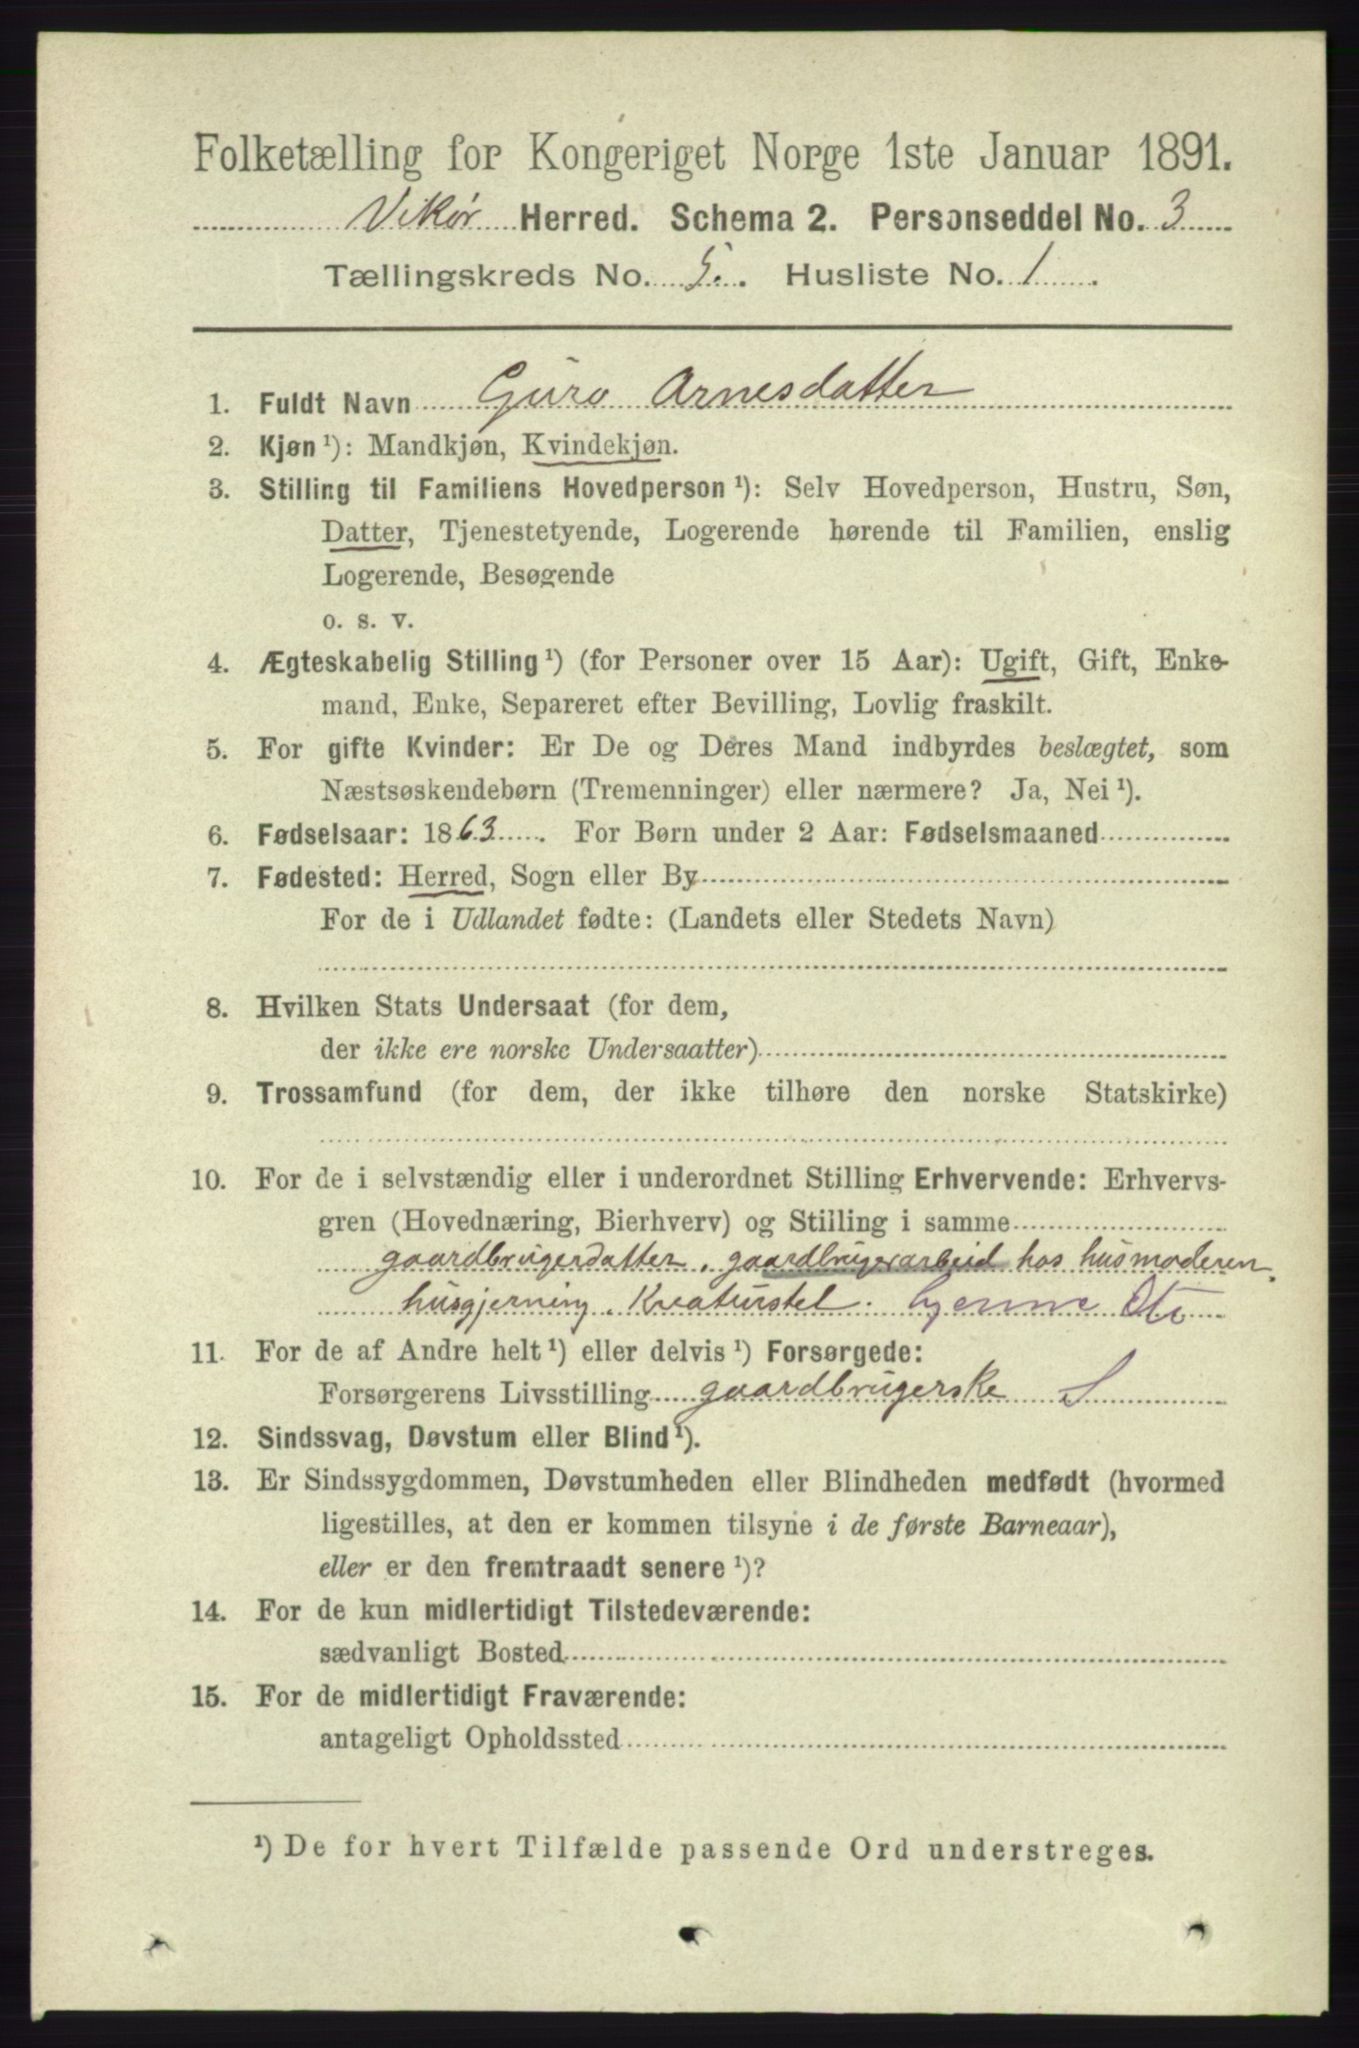 Folketælling for Kongeriget Norge 1ste Januar 1891.
Vikør Herred. Schema 2. Personseddel No. 3
Tællingskreds No. 5. Husliste No. 1.
1. Fuldt Navn Guro Arnesdatter
2. Kjøn ¹): Mandkjøn, Kvindekjøn.
3. Stilling til Familiens Hovedperson ¹): Selv Hovedperson, Hustru, Søn,
Datter, Tjenestetyende, Logerende hørende til Familien, enslig
Logerende, Besøgende
o. s. v.
4. Ægteskabelig Stilling ¹) (for Personer over 15 Aar): Ugift, Gift, Enke-
mand, Enke, Separeret efter Bevilling, Lovlig fraskilt.
5. For gifte Kvinder: Er De og Deres Mand indbyrdes beslægtet, som
Næstsøskendebørn (Tremenninger) eller nærmere? Ja, Nei ¹).
6. Fødselsaar: 1863. For Børn under 2 Aar: Fødselsmaaned
7. Fødested: Herred, Sogn eller By
For de i Udlandet fødte: (Landets eller Stedets Navn)
8. Hvilken Stats Undersaat (for dem,
der ikke ere norske Undersaatter)
9. Trossamfund (for dem, der ikke tilhøre den norske Statskirke)
10. For de i selvstændig eller i underordnet Stilling Erhvervende: Erhvervs-
gren (Hovednæring, Bierhverv) og Stilling i samme
gaardbrugerdatter. gaardbrugerarbeid hos husmoderen.
husgjerning. Kreaturstel. hjemme
11. For de af Andre helt ¹) eller delvis ¹) Forsørgede:
Forsørgerens Livsstilling gaardbrugerske S
12. Sindssvag, Døvstum eller Blind ¹).
13. Er Sindssygdommen, Døvstumheden eller Blindheden medfødt (hvormed
ligestilles, at den er kommen tilsyne i de første Barneaar),
eller er den fremtraadt senere ¹)?
14. For de kun midlertidigt Tilstedeværende:
sædvanligt Bosted
15. For de midlertidigt Fraværende:
antageligt Opholdssted
¹) De for hvert Tilfælde passende Ord understreges.